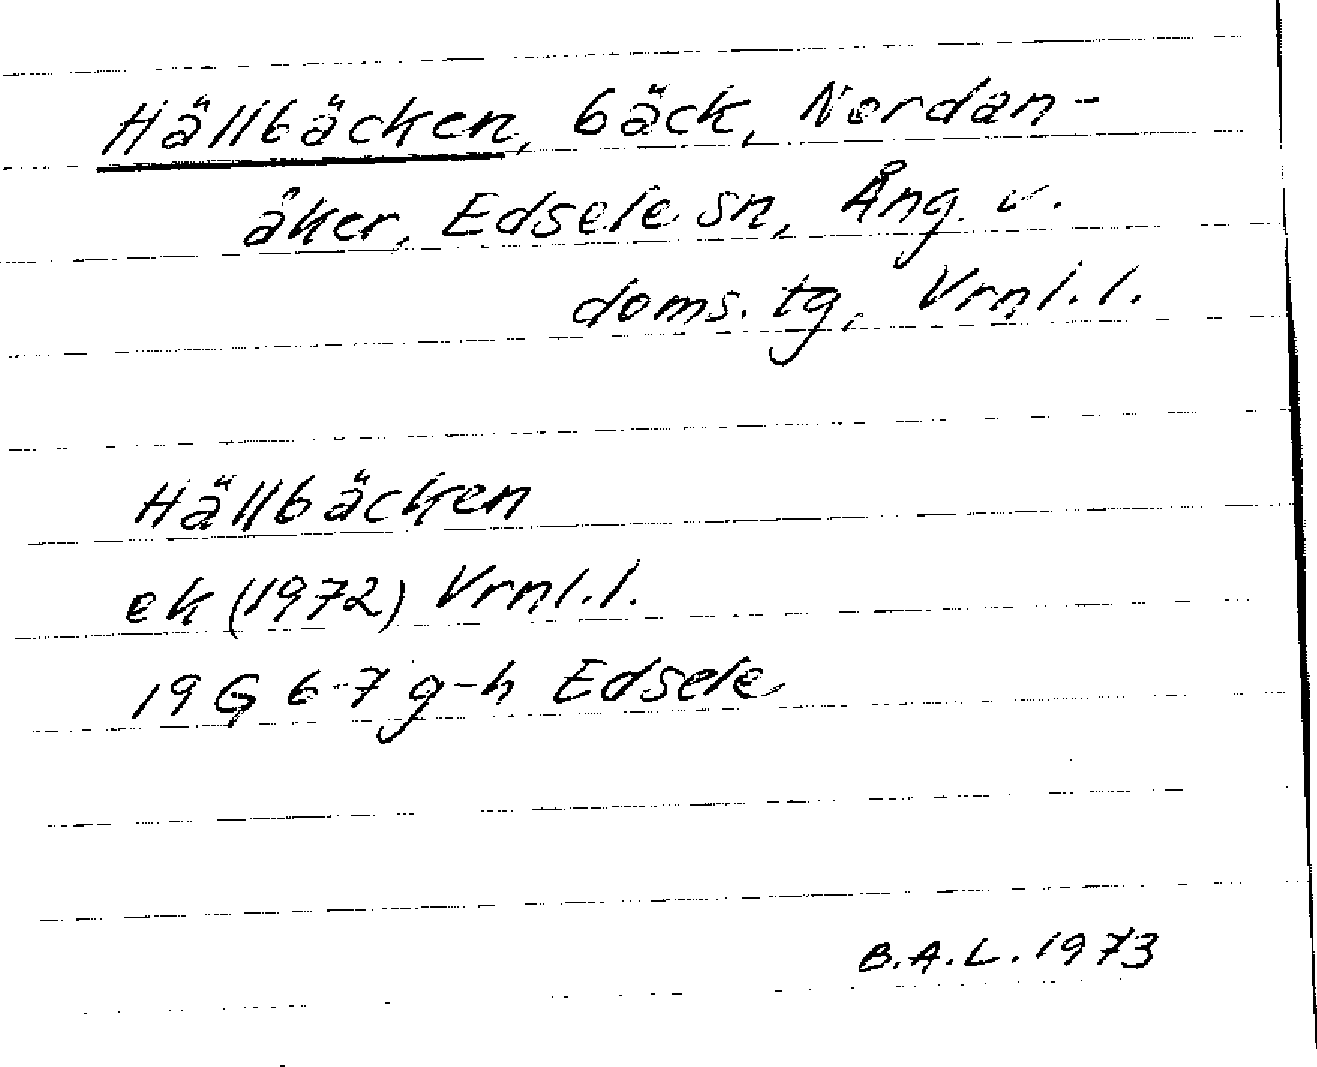 Hällbäcken, bäck, Nordan-
åker, Edsele sn, Ång. v.
doms. tg, Vrnl. l.
Hällbäcken
ek (1972) Vrnl. l.
19 G 6-7 g-h Edsele
B.A.L. 1973